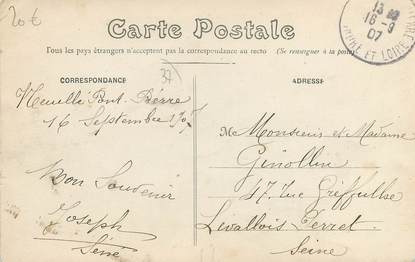 20€
Carte Postale
Tous les pays étrangers n'acceptent pas la correspondance au recto (Se renseigner à la poste)
CORRESPONDANCE
37
ADRESSE
13
16-9
07
INDRE ET LOIRE
Neuillé Pont-Pierre
16 Septembre 1907
Bon Souvenir
Joseph
M Monsieur et Madame
Ginollin
47, rue Greffulhe
Levallois Perret
Seine